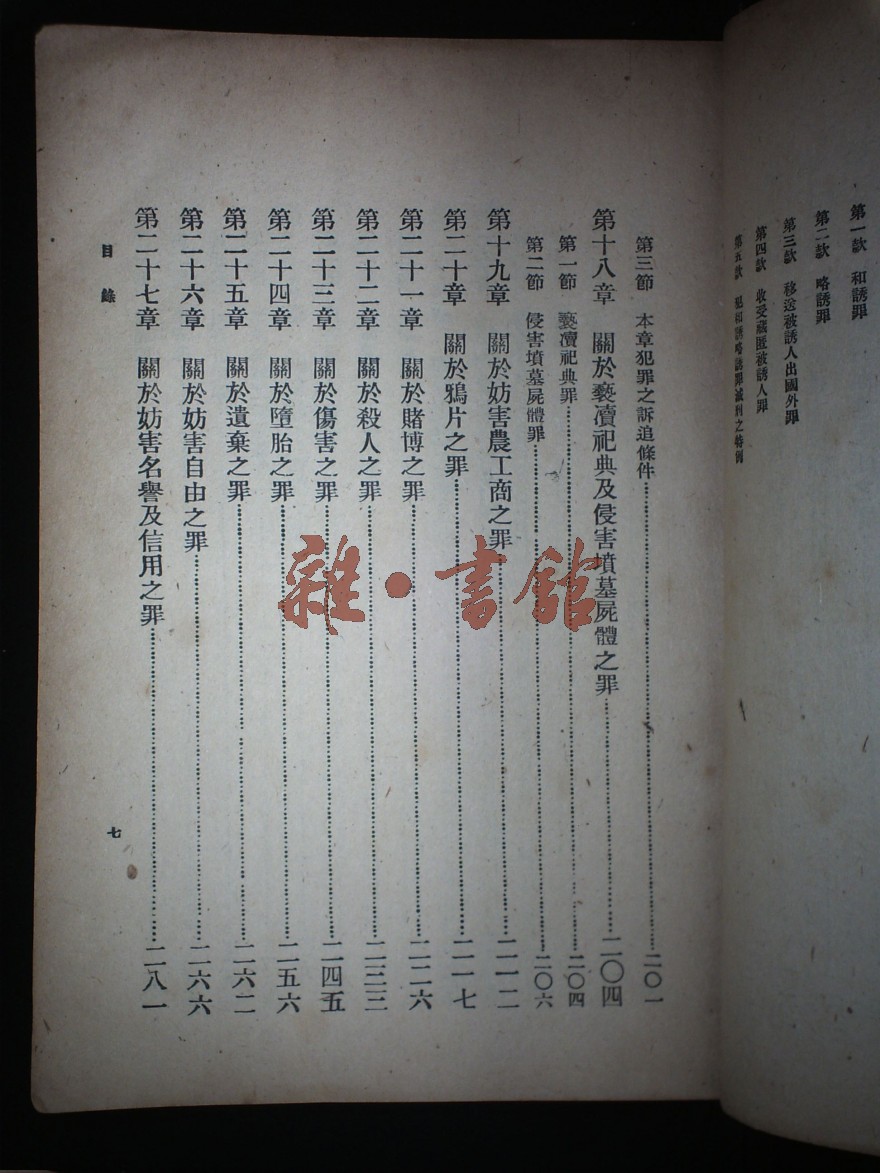 第一款　和誘罪
第二款　略誘罪
第三款　移送被誘人出國外罪
第四款　收受藏匿被誘人罪
第五款　犯和誘略誘罪減刑之特例
第三節　本章犯罪之訴追條件……二〇一
第十八章　關於褻瀆祀典及侵害墳墓屍體之罪……二〇四
第一節　褻瀆祀典罪……二〇四
第二節　侵害墳墓屍體罪……二〇六
第十九章　關於妨害農工商之罪……二一二
第二十章　關於鴉片之罪……二一七
第二十一章　關於賭博之罪……二二六
第二十二章　關於殺人之罪……二三三
第二十三章　關於傷害之罪……二四五
第二十四章　關於墮胎之罪……二五六
第二十五章　關於遺棄之罪……二六二
第二十六章　關於妨害自由之罪……二六六
第二十七章　關於妨害名譽及信用之罪……二八一
目錄
七
雜·書館